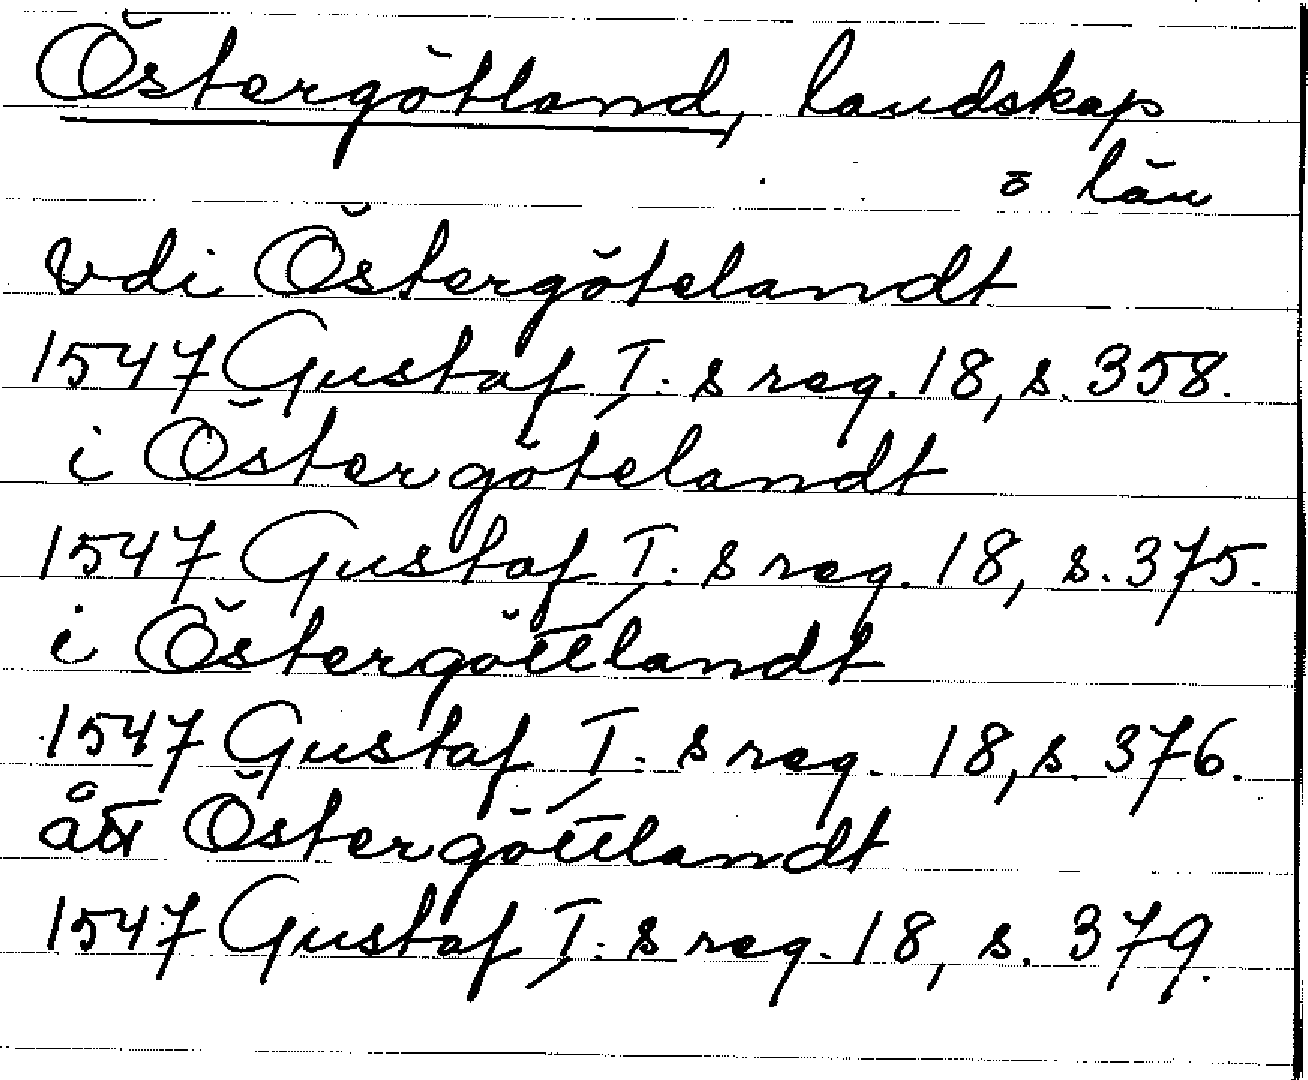 Östergötland, landskap
o län
vdi Östergötelandt
1547 Gustaf I:s reg. 18, s. 358.
i Östergötelandt
1547 Gustaf I:s reg. 18, s. 375.
i Östergöttlandt
1547 Gustaf I:s reg. 18, s. 376.
ått Östergöttlandt
1547 Gustaf I:s reg. 18, s. 379.